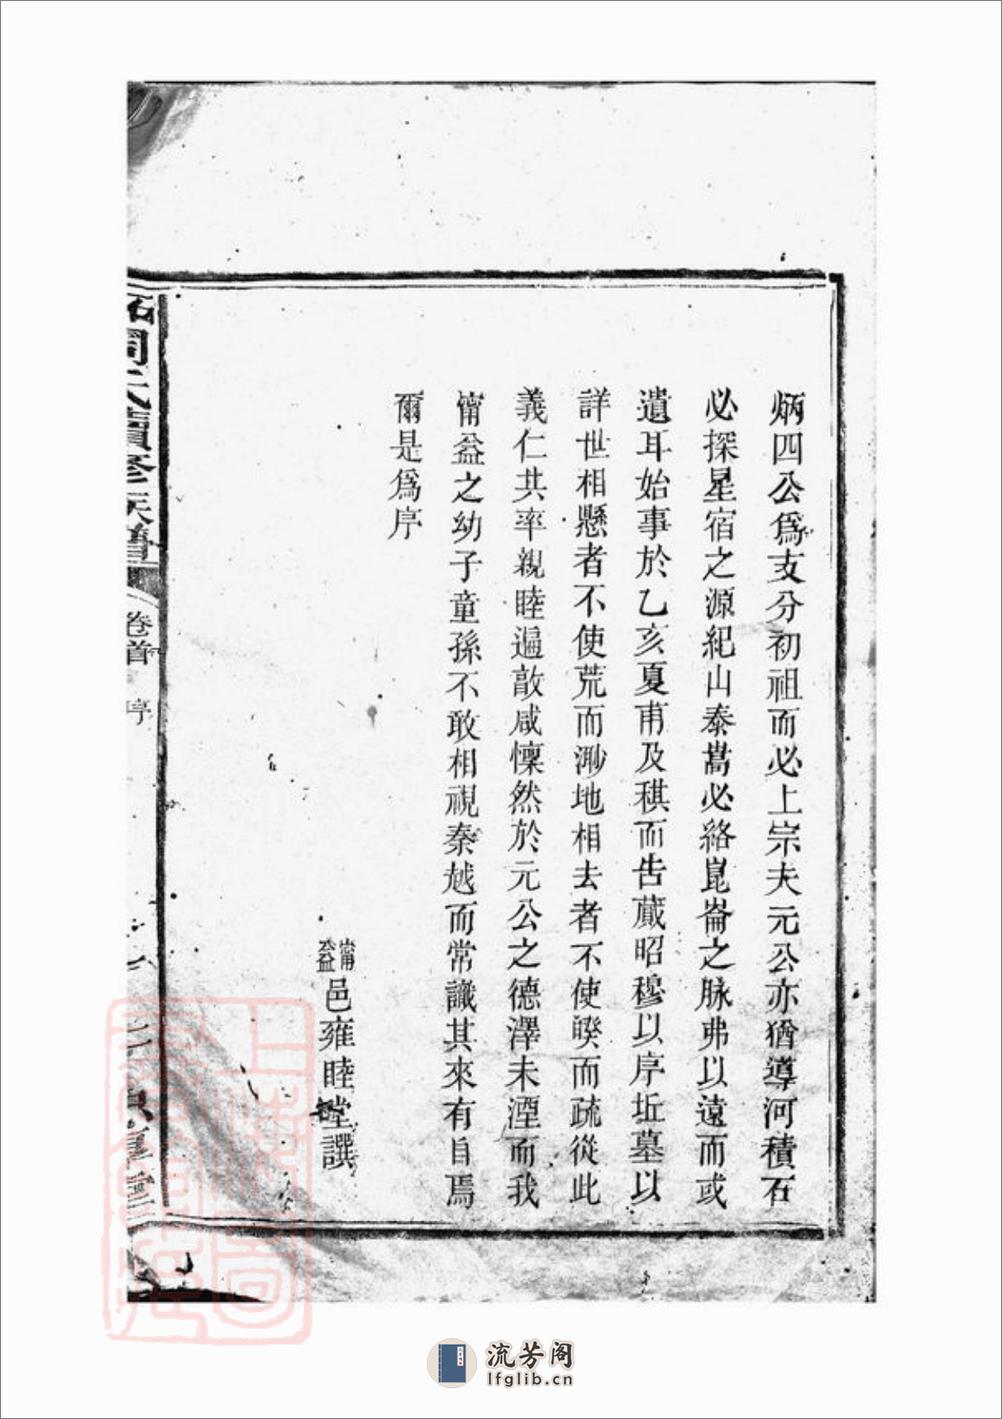 炳四公爲支分初祖而必上宗夫元公亦猶導河積石
必探星宿之源紀山泰嵩必絡崑崙之脉弗以遠而或
遺耳始事於乙亥夏甫及稘而告蕆昭穆以序坵墓以
詳世相懸者不使荒而渺地相去者不使暌而疏從此
義仁共率親睦遍敦咸懍然於元公之德澤未湮而我
甯益之幼子童孫不敢相視秦越而常識其來有自焉
爾是爲序
甯益邑雍睦堂譔
周氏續修族譜
卷首
序
流芳阁
lfglib.cn